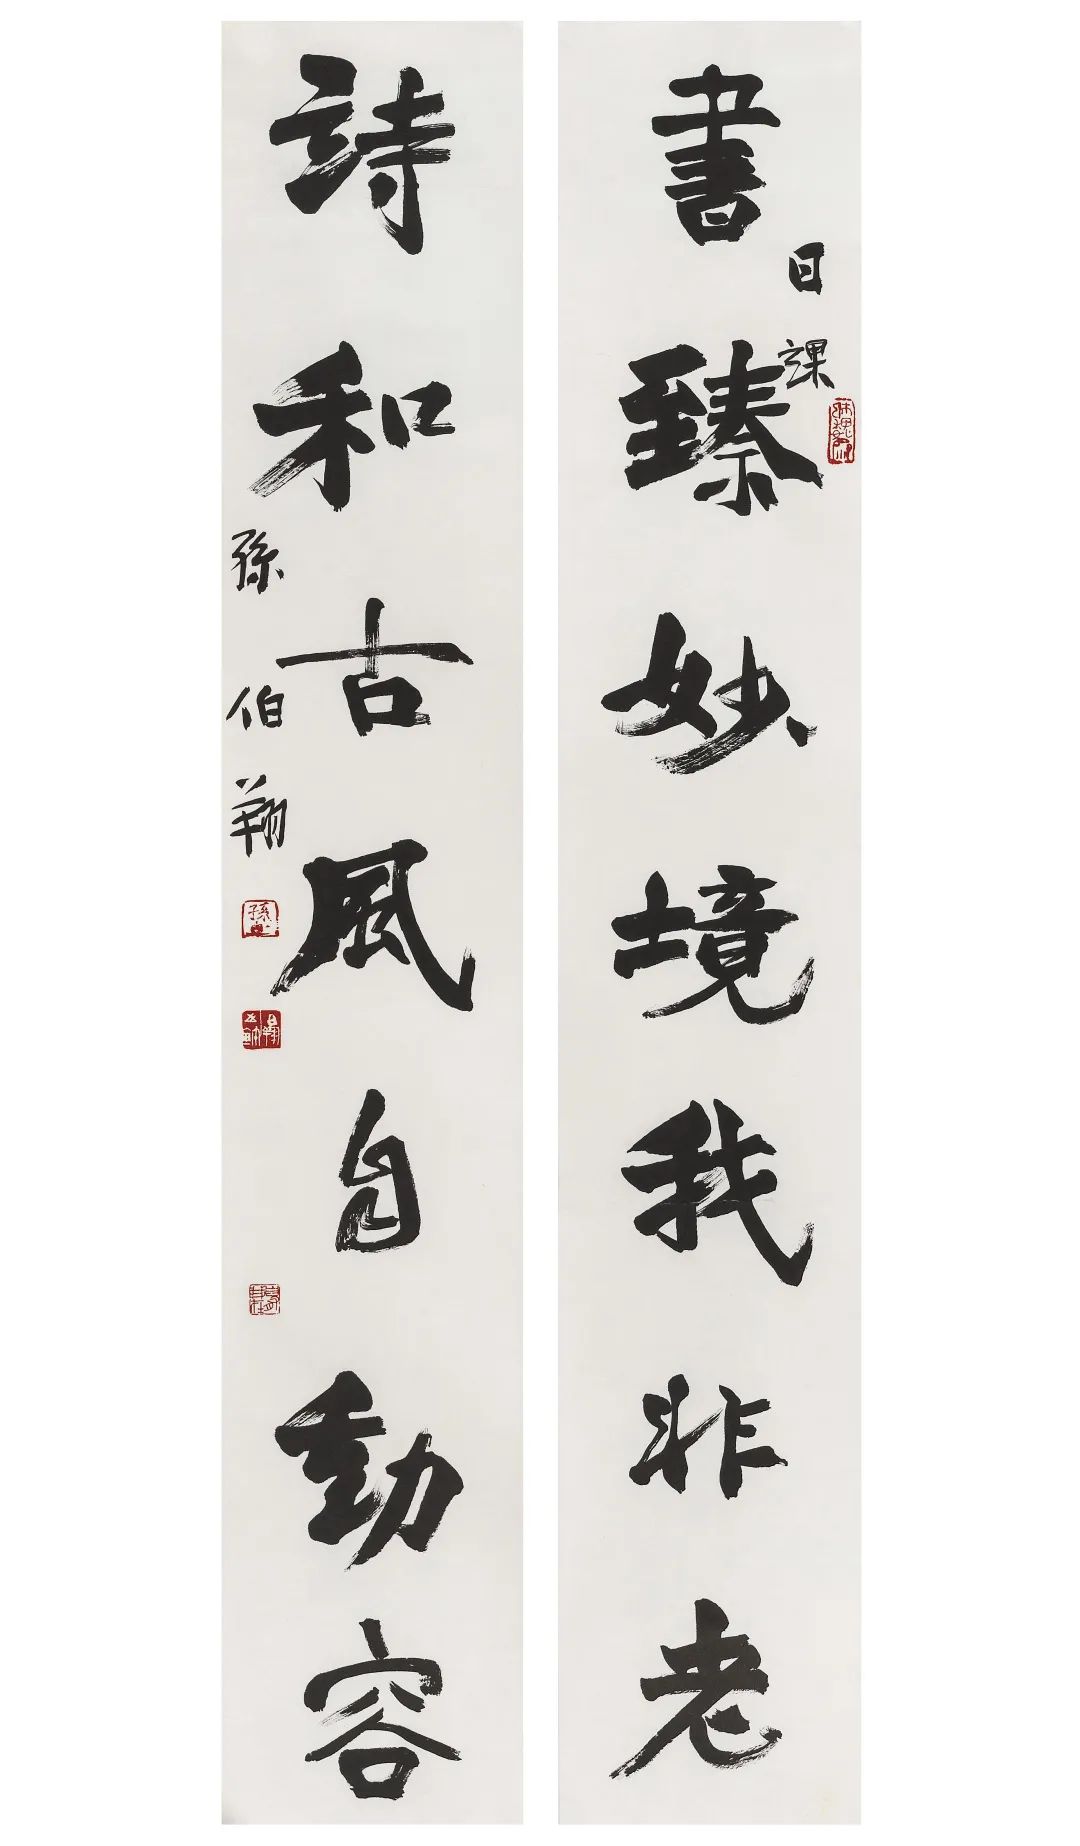 書臻妙境我非老
日課
詩和古風自動容
孫伯翔